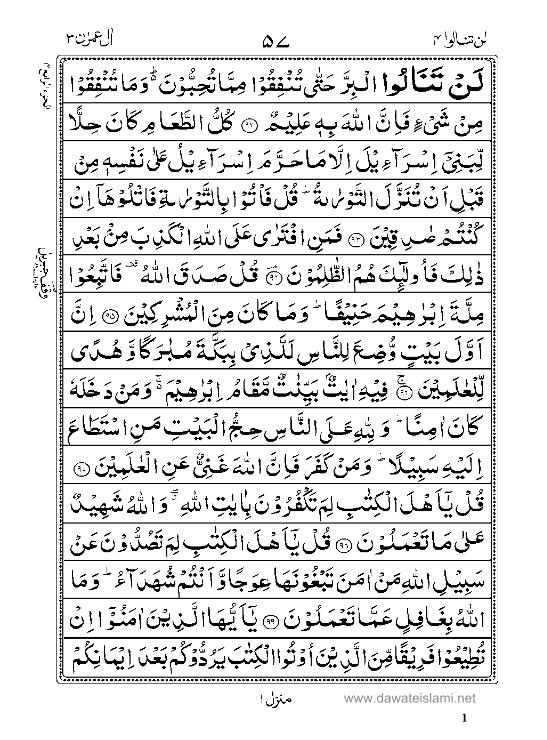 لن تنالوا ۴ ۵۷ اٰل عمرٰن ۳
الجزء الرابع ۴
لَنْ تَنَالُوا الْبِرَّ حَتّٰى تُنْفِقُوْا مِمَّا تُحِبُّوْنَ ؕ وَمَا تُنْفِقُوْا
مِنْ شَیْءٍ فَاِنَّ اللّٰهَ بِهٖ عَلِیْمٌ ﴿۹۲﴾ كُلُّ الطَّعَامِ كَانَ حِلًّا
لِّبَنِیْۤ اِسْرَآءِیْلَ اِلَّا مَا حَرَّمَ اِسْرَآءِیْلُ عَلٰى نَفْسِهٖ مِنْ
قَبْلِ اَنْ تُنَزَّلَ التَّوْرٰىةُ ؕ قُلْ فَاْتُوْا بِالتَّوْرٰىةِ فَاتْلُوْهَاۤ اِنْ
كُنْتُمْ صٰدِقِیْنَ ﴿۹۳﴾ فَمَنِ افْتَرٰى عَلَى اللّٰهِ الْكَذِبَ مِنْۢ بَعْدِ
ذٰلِكَ فَاُولٰٓئِكَ هُمُ الظّٰلِمُوْنَ ﴿۹۴﴾ قُلْ صَدَقَ اللّٰهُ ۫ فَاتَّبِعُوْا
مِلَّةَ اِبْرٰهِیْمَ حَنِیْفًا ؕ وَمَا كَانَ مِنَ الْمُشْرِكِیْنَ ﴿۹۵﴾ اِنَّ
اَوَّلَ بَیْتٍ وُّضِعَ لِلنَّاسِ لَلَّذِیْ بِبَكَّةَ مُبٰرَكًا وَّهُدًى
لِّلْعٰلَمِیْنَ ﴿۹۶﴾ فِیْهِ اٰیٰتٌۢ بَیِّنٰتٌ مَّقَامُ اِبْرٰهِیْمَ ۬ۚ وَمَنْ دَخَلَهٗ
كَانَ اٰمِنًا ؕ وَلِلّٰهِ عَلَى النَّاسِ حِجُّ الْبَیْتِ مَنِ اسْتَطَاعَ
اِلَیْهِ سَبِیْلًا ؕ وَمَنْ كَفَرَ فَاِنَّ اللّٰهَ غَنِیٌّ عَنِ الْعٰلَمِیْنَ ﴿۹۷﴾
قُلْ یٰۤاَهْلَ الْكِتٰبِ لِمَ تَكْفُرُوْنَ بِاٰیٰتِ اللّٰهِ ۖۗ وَاللّٰهُ شَهِیْدٌ
عَلٰى مَا تَعْمَلُوْنَ ﴿۹۸﴾ قُلْ یٰۤاَهْلَ الْكِتٰبِ لِمَ تَصُدُّوْنَ عَنْ
سَبِیْلِ اللّٰهِ مَنْ اٰمَنَ تَبْغُوْنَهَا عِوَجًا وَّاَنْتُمْ شُهَدَآءُ ؕ وَمَا
اللّٰهُ بِغَافِلٍ عَمَّا تَعْمَلُوْنَ ﴿۹۹﴾ یٰۤاَیُّهَا الَّذِیْنَ اٰمَنُوْۤا اِنْ
تُطِیْعُوْا فَرِیْقًا مِّنَ الَّذِیْنَ اُوْتُوا الْكِتٰبَ یَرُدُّوْكُمْ بَعْدَ اِیْمَانِكُمْ
منزل ۱
www.dawateislami.net
1